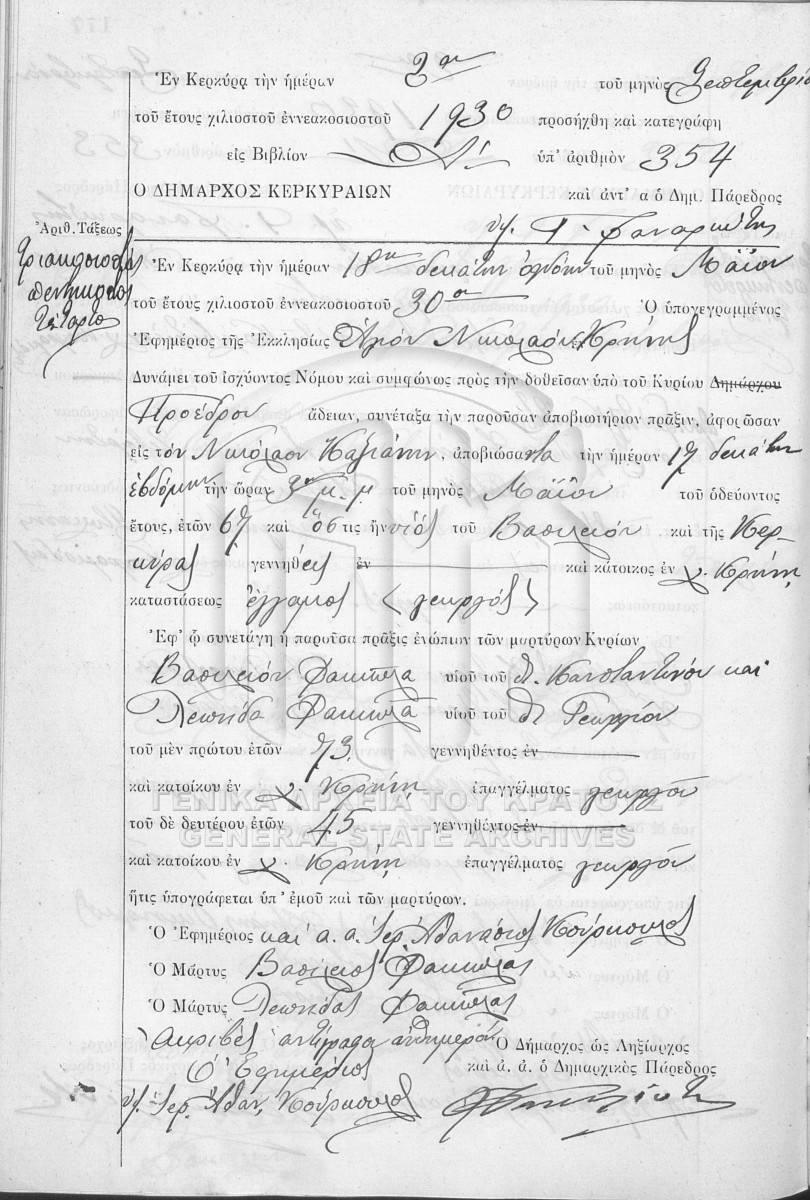 Ἐν Κερκύρᾳ τὴν ἡμέραν 2αν τοῦ μηνὸς Σεπτεμβρίου
τοῦ ἔτους χιλιοστοῦ ἐννεακοσιοστοῦ 1930 προσήχθη καὶ κατεγράφη
εἰς Βιβλίον Δ! ὑπ' ἀριθμὸν 354
Ο ΔΗΜΑΡΧΟΣ ΚΕΡΚΥΡΑΙΩΝ καὶ ἀντ' α ὁ Δημ. Πάρεδρος
Ἀριθ. Τάξεως
Τριακοσιοστὸς
πεντηκοστὸς
τέταρτος
Ἐν Κερκύρᾳ τὴν ἡμέραν 18ην δεκάτην ὀγδόην τοῦ μηνὸς Μαΐου
τοῦ ἔτους χιλιοστοῦ ἐννεακοσιοστοῦ 30οῦ Ὁ ὑπογεγραμμένος
Ἐφημέριος τῆς Ἐκκλησίας Ἁγίου Νικολάου Κρήνης
Δυνάμει τοῦ ἰσχύοντος Νόμου καὶ συμφώνως πρὸς τὴν δοθεῖσαν ὑπὸ τοῦ Κυρίου Δημάρχου
Προέδρου ἄδειαν, συνέταξα τὴν παροῦσαν ἀποβιωτήριον πρᾶξιν, ἀφορῶσαν
εἰς τὸν Νικόλαον ἀποβιώσαντα τὴν ἡμέραν 17 δεκάτην
ἑβδόμην τὴν ὥραν 3ην μ.μ τοῦ μηνὸς Μαΐου τοῦ ὁδεύοντος
ἔτους, ἐτῶν 67 καὶ ὅστις ἦν υἱὸς τοῦ Βασιλείου καὶ τῆς Κερ-
κύρας γεννηθεὶς ἐν καὶ κάτοικος ἐν χ. Κρήνη
καταστάσεως ἔγγαμος (γεωργὸς)
Ἐφ' ᾧ συνετάγη ἡ παροῦσα πρᾶξις ἐνώπιον τῶν μαρτύρων Κυρίων
Βασιλείου Φακιολᾶ υἱοῦ τοῦ Κωνσταντίνου καὶ
Λεωνίδα Φακιολᾶ υἱοῦ τοῦ Γεωργίου
τοῦ μὲν πρώτου ἐτῶν 73 γεννηθέντος ἐν
καὶ κατοίκου ἐν χ. Κρήνη ἐπαγγέλματος γεωργοῦ
ΓΕΝΙΚΑ ΑΡΧΕΙΑ ΤΟΥ ΚΡΑΤΟΥΣ
τοῦ δὲ δευτέρου ἐτῶν 45 γεννηθέντος ἐν
GENERAL STATE ARCHIVES
καὶ κατοίκου ἐν χ. Κρήνη ἐπαγγέλματος γεωργοῦ
ἥτις ὑπογράφεται ὑπ' ἐμοῦ καὶ τῶν μαρτύρων.
Ὁ Ἐφημέριος καὶ α. α. Ἱερ. Ἀθανάσιος Κούρκουλος
Ὁ Μάρτυς Βασίλειος Φακιολᾶς
Ὁ Μάρτυς Λεωνίδας Φακιολᾶς
Ἀκριβὲς ἀντίγραφον αὐθημερόν Ὁ Δήμαρχος ὡς Ληξίαρχος
Ὁ Ἐφημέριος καὶ ἀ. ἀ. ὁ Δημαρχικὸς Πάρεδρος
Ἱερ. Ἀθαν. Κούρκουλος